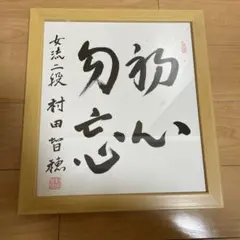 初心
勿忘
女流二段 村田智穂